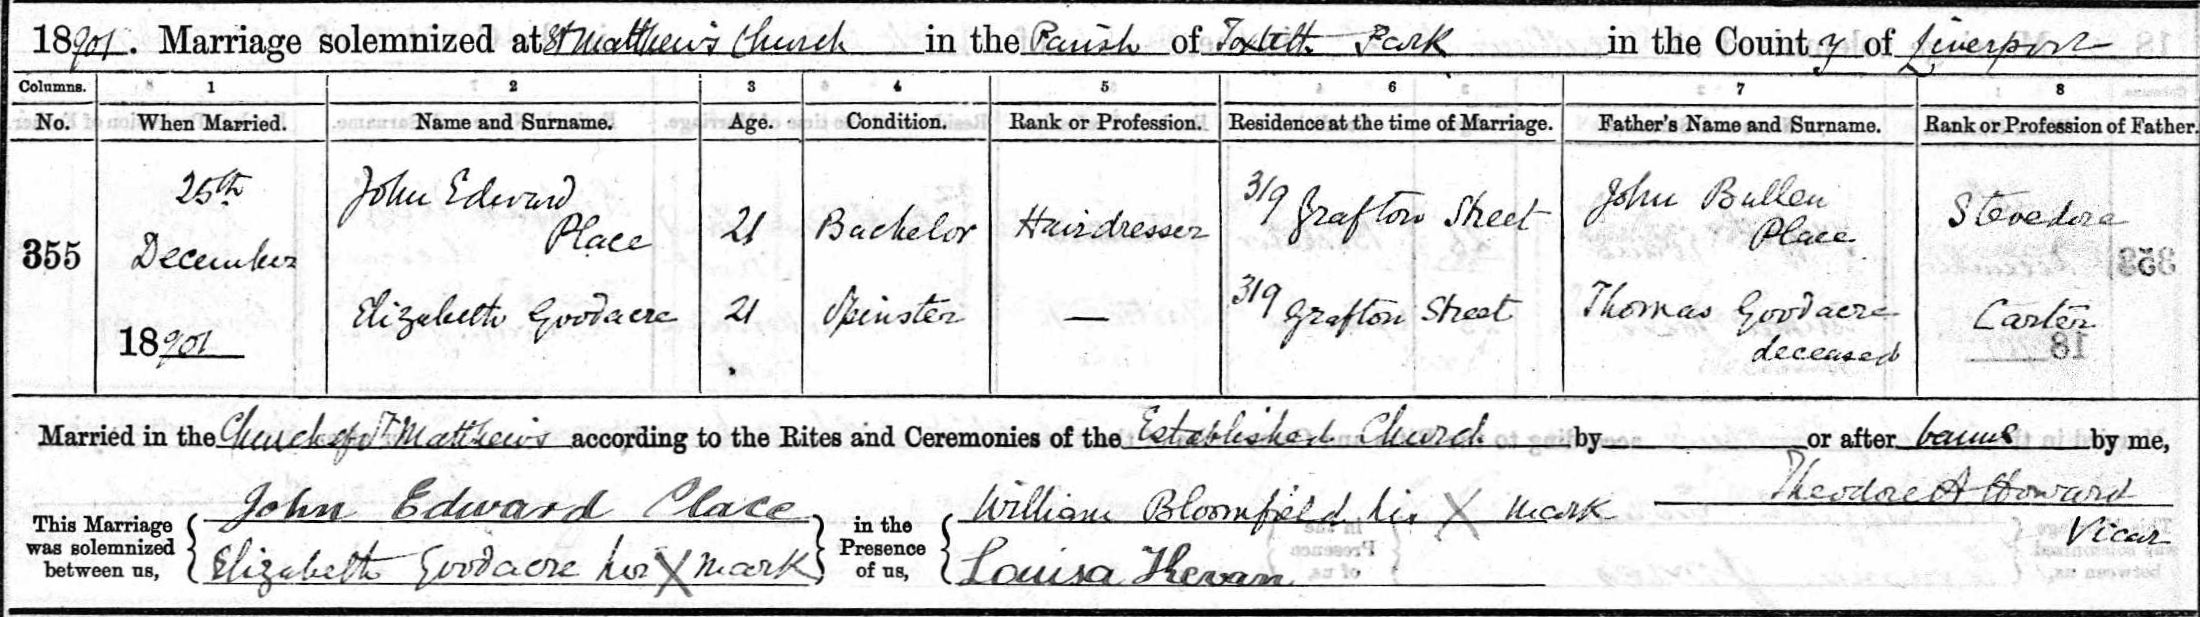 18901. Marriage solemnized at St Matthew's Church in the Parish of Toxteth Park in the County of Liverpool
Columns. 1 2 3 4 5 6 7 8
No. When Married. Name and Surname. Age. Condition. Rank or Profession. Residence at the time of Marriage. Father's Name and Surname. Rank or Profession of Father.
355 25th December 18901 John Edward Place 21 Bachelor Hairdresser 319 Grafton Street John Bullen Place Stevedore
Elizabeth Goodacre 21 Spinster — 319 Grafton Street Thomas Goodacre deceased Carter
Married in the Church of St Matthew's according to the Rites and Ceremonies of the Established Church by or after banns by me,
This Marriage was solemnized between us, John Edward Place in the Presence of us, William Bloomfield his X mark Theodore A Howard
Elizabeth Goodacre her X mark Louisa Thevan Vicar